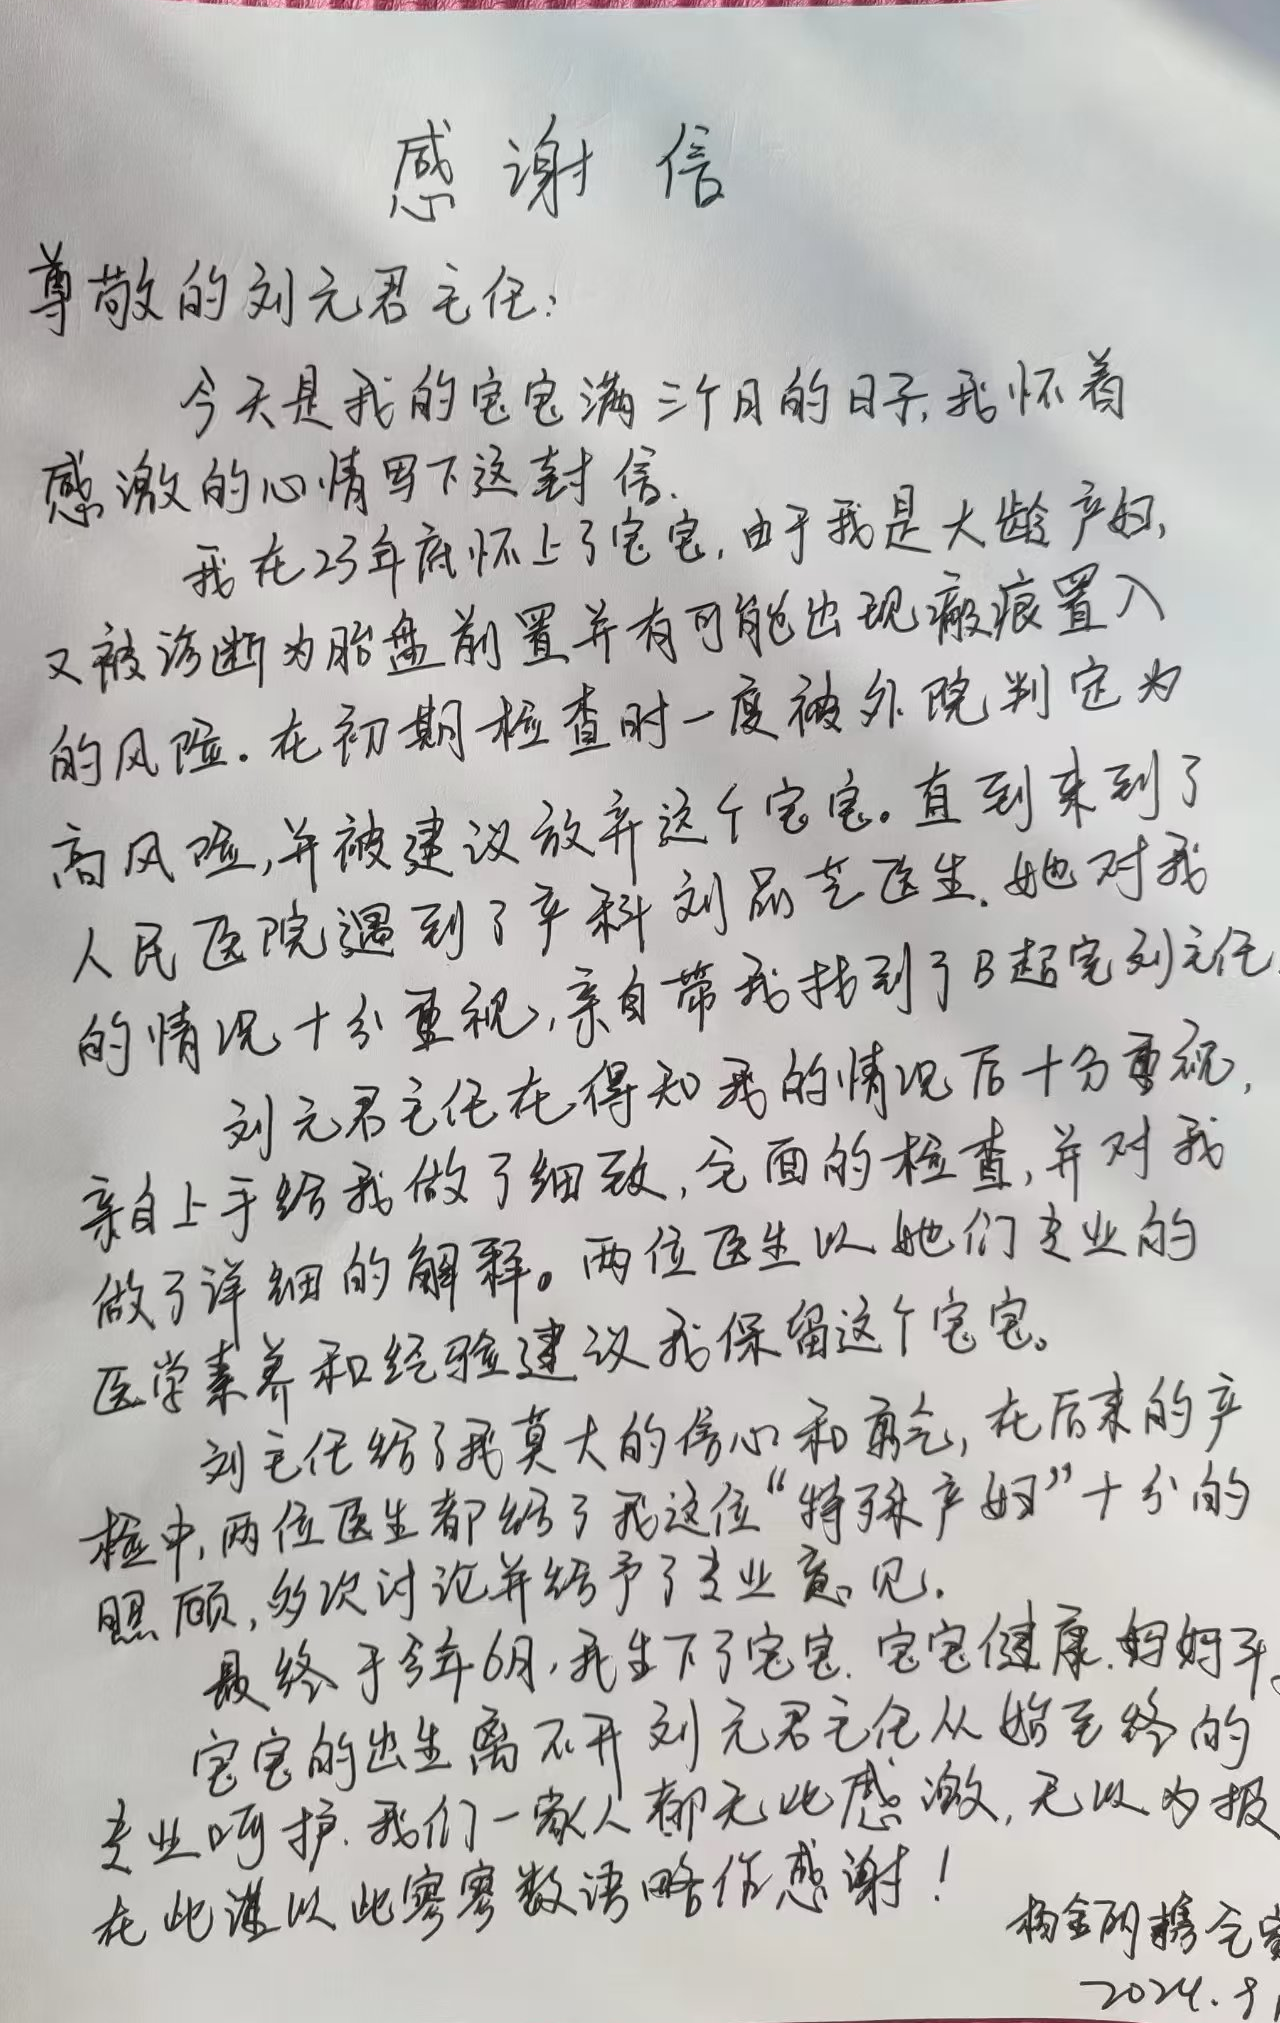 感谢信
尊敬的刘元君主任:
今天是我的宝宝满三个月的日子,我怀着
感激的心情写下这封信.
我在23年底怀上了宝宝,由于我是大龄产妇,
又被诊断为胎盘前置并有可能出现瘢痕置入
的风险.在初期检查时一度被外院判定为
高风险,并被建议放弃这个宝宝。直到来到了
人民医院遇到了产科刘品芝医生.她对我
的情况十分重视,亲自带我找到了B超室刘主任.
刘元君主任在得知我的情况后十分重视,
亲自上手给我做了细致,全面的检查,并对我
做了详细的解释。两位医生以她们专业的
医学素养和经验建议我保留这个宝宝。
刘主任给了我莫大的信心和勇气,在后来的产
检中,两位医生都给了我这位“特殊产妇”十分的
照顾,多次讨论并给予了专业意见.
最终于今年6月,我生下了宝宝.宝宝健康.妈妈平
宝宝的出生离不开刘元君主任从始至终的
专业呵护.我们一家人都无比感激,无以为报
在此谨以此寥寥数语略作感谢!
杨金 携全家
2024.9